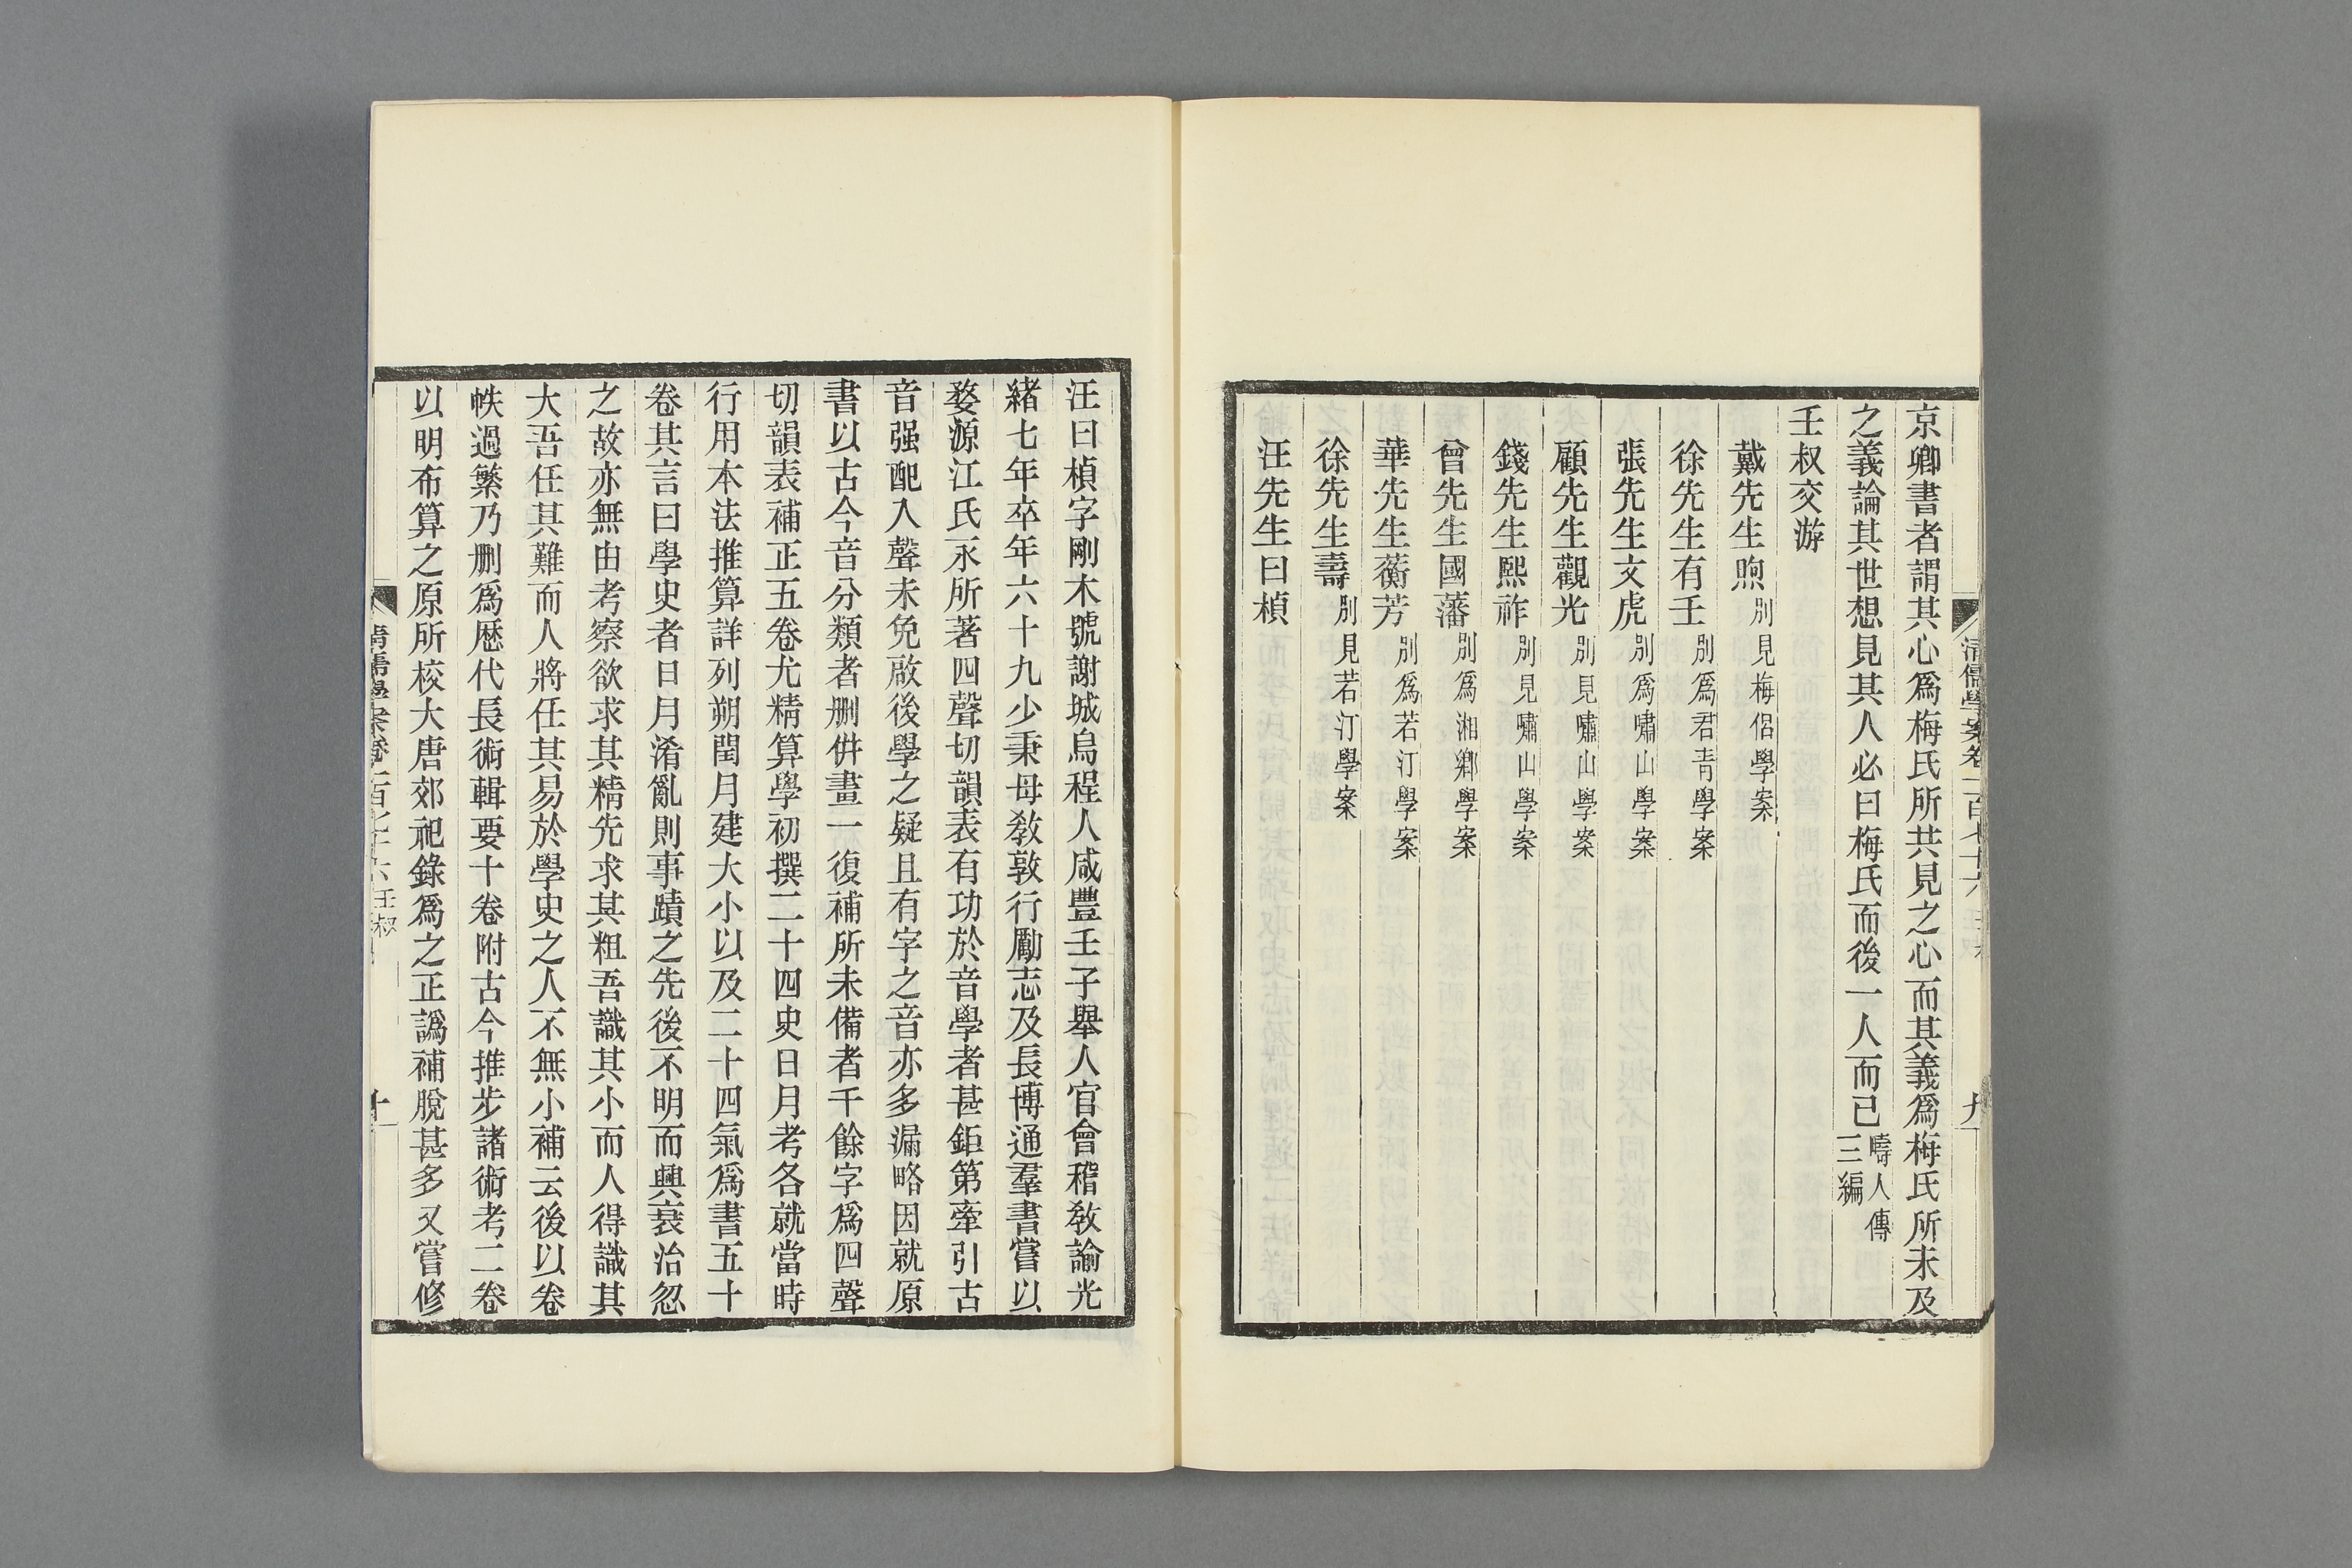 京卿書者謂其心爲梅氏所共見之心而其義爲梅氏所未及
之義論其世想見其人必曰梅氏而後一人而已疇人傳三編
壬叔交游
戴先生煦別見梅侶學案
徐先生有壬別爲君青學案
張先生文虎別爲嘯山學案
顧先生觀光別見嘯山學案
錢先生熙祚別見嘯山學案
曾先生國藩別爲湘鄉學案
華先生蘅芳別爲若汀學案
徐先生壽別見若汀學案
汪先生曰楨
汪曰楨字剛木號謝城烏程人咸豐壬子舉人官會稽教諭光
緒七年卒年六十九少秉母教敦行勵志及長博通羣書嘗以
婺源江氏永所著四聲切韻表有功於音學者甚鉅第牽引古
音强配入聲未免啟後學之疑且有字之音亦多漏略因就原
書以古今音分類者删倂畫一復補所未備者千餘字爲四聲
切韻表補正五卷尤精算學初撰二十四史日月考各就當時
行用本法推算詳列朔閏月建大小以及二十四氣爲書五十
卷其言曰學史者日月淆亂則事蹟之先後不明而興衰治忽
之故亦無由考察欲求其精先求其粗吾識其小而人得識其
大吾任其難而人將任其易於學史之人不無小補云後以卷
帙過繁乃删爲歷代長術輯要十卷附古今推步諸術考二卷
以明布算之原所校大唐郊祀錄爲之正譌補脫甚多又嘗修